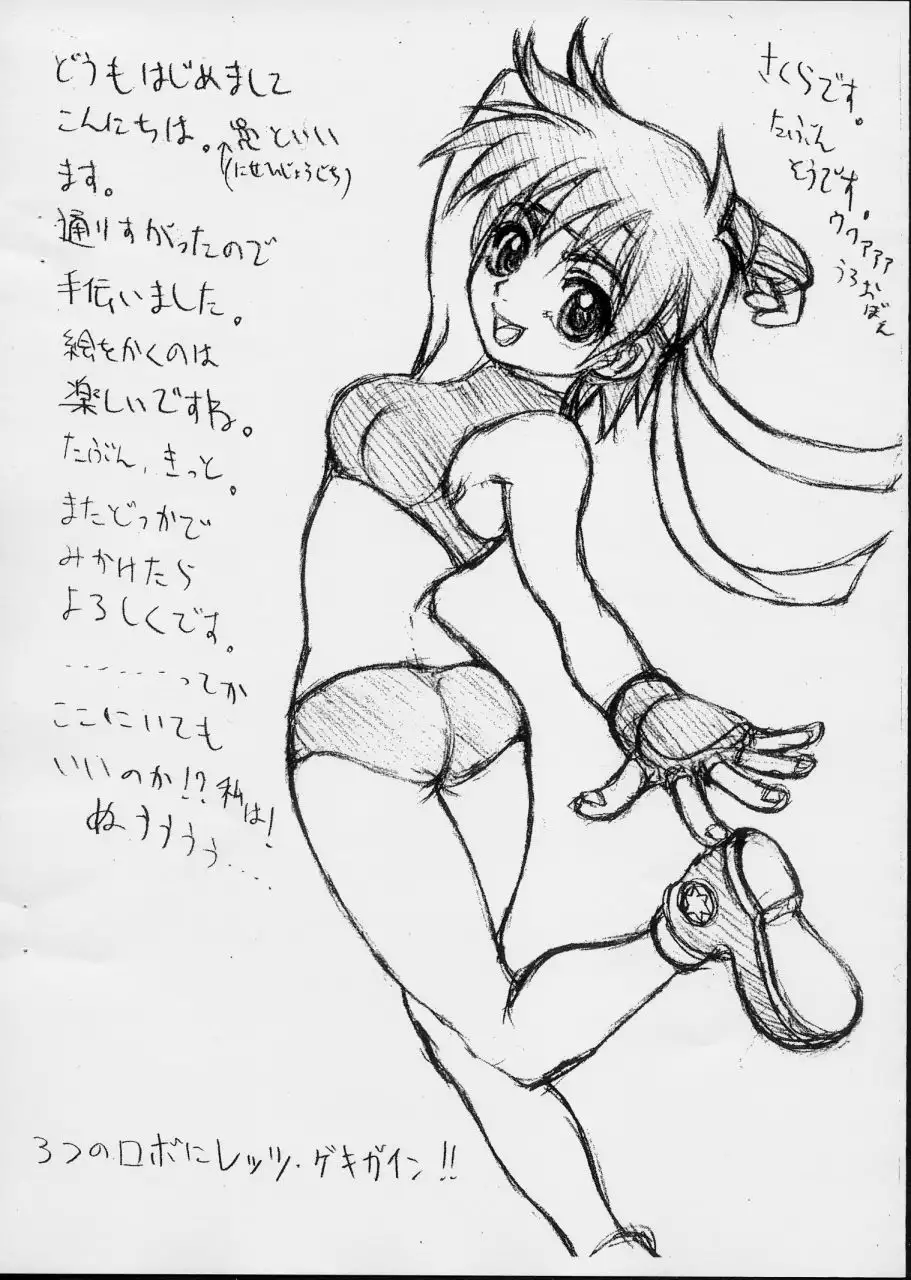 どうもはじめまして
こんにちは。といい
(にせんじょうじち)
ます。
通りすがったので
手伝いました。
絵をかくのは
楽しいですね。
たぶん、きっと。
またどっかで
みかけたら
よろしくです。
………ってか
ここにいても
いいのか!?私は!
ぬぅぅぅぅ…
さくらです。
たぶん
そうです。
ウアァァァ
うろおぼえ
3つのロボにレッツ・ゲキガイン!!